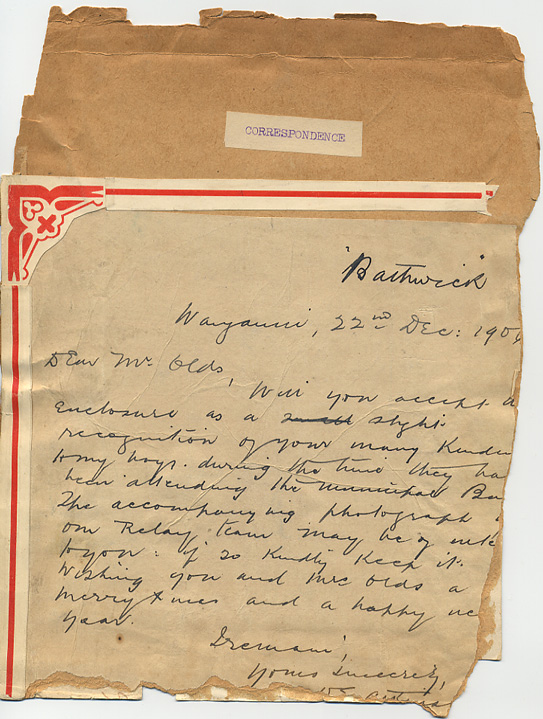 CORRESPONDENCE
"Bathwick"
Wanganui, 22nd Dec: 190
Dear Mr Olds,
Will you accept
enclosure as a small slight
recognition of your many kindn
to my boys during the time they ha
been attending the Municipal Ba
The accompanying photograph
our Relay team may be of inte
to you: if so kindly keep it.
Wishing you and Mrs Olds a
merry Xmas and a happy ne
year.
I remain,
Yours sincerely,